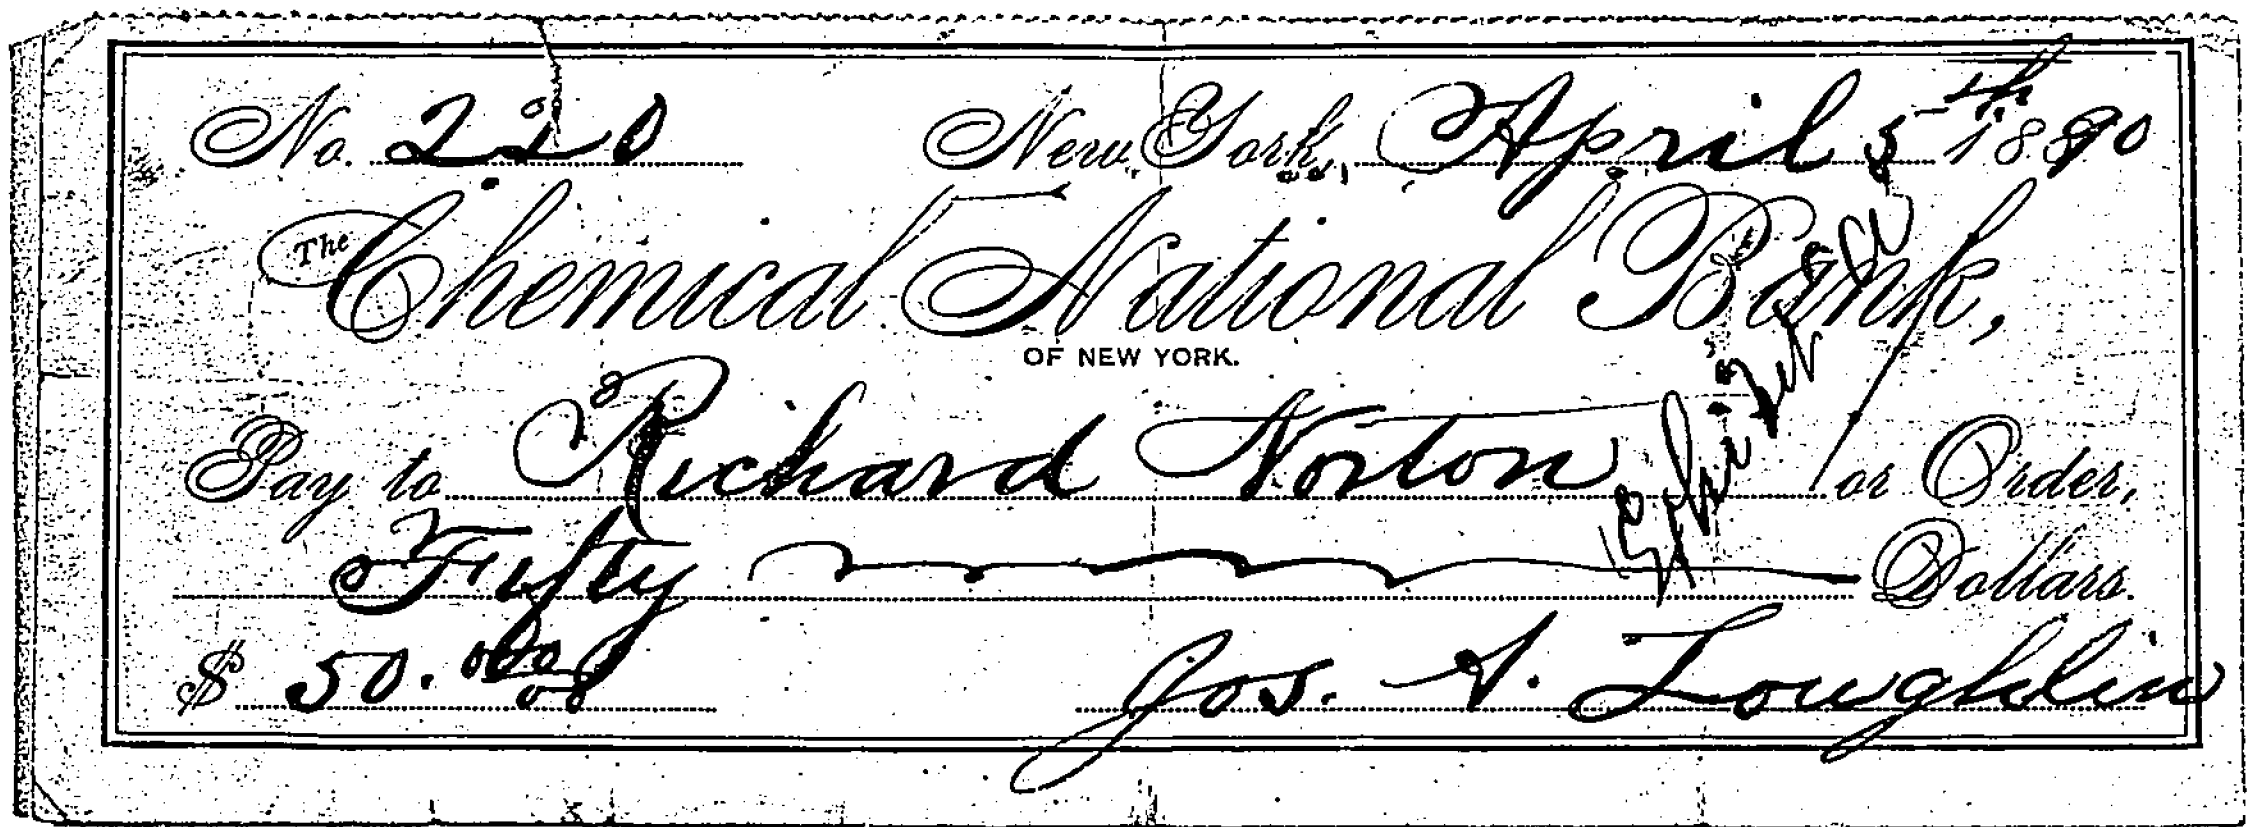 No. 220 New York, April 5th 1890
The Chemical National Bank,
OF NEW YORK.
Pay to Richard Norton or Order,
Fifty Dollars.
$ 50.00
Jos. A. Loughlin